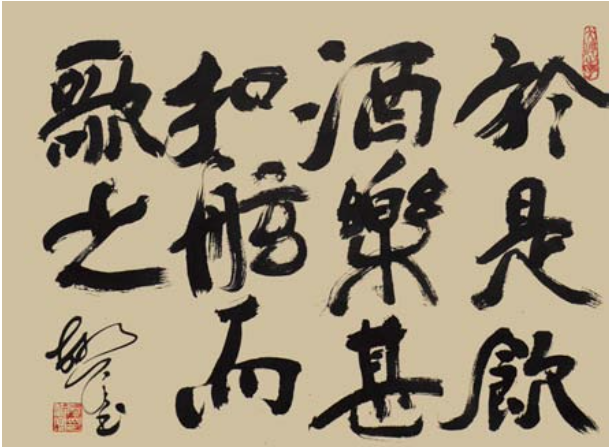 於是飲
酒樂甚
扣舷而
歌之